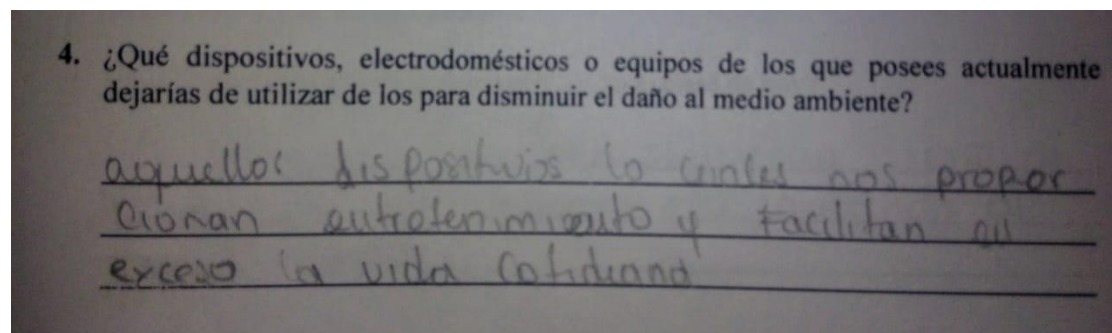 4. ¿Qué dispositivos, electrodomésticos o equipos de los que posees actualmente
dejarías de utilizar de los para disminuir el daño al medio ambiente?
aquellos dispositivios lo cuales nos propor
cionan entretenimiento y facilitan en
exceso la vida cotidiana